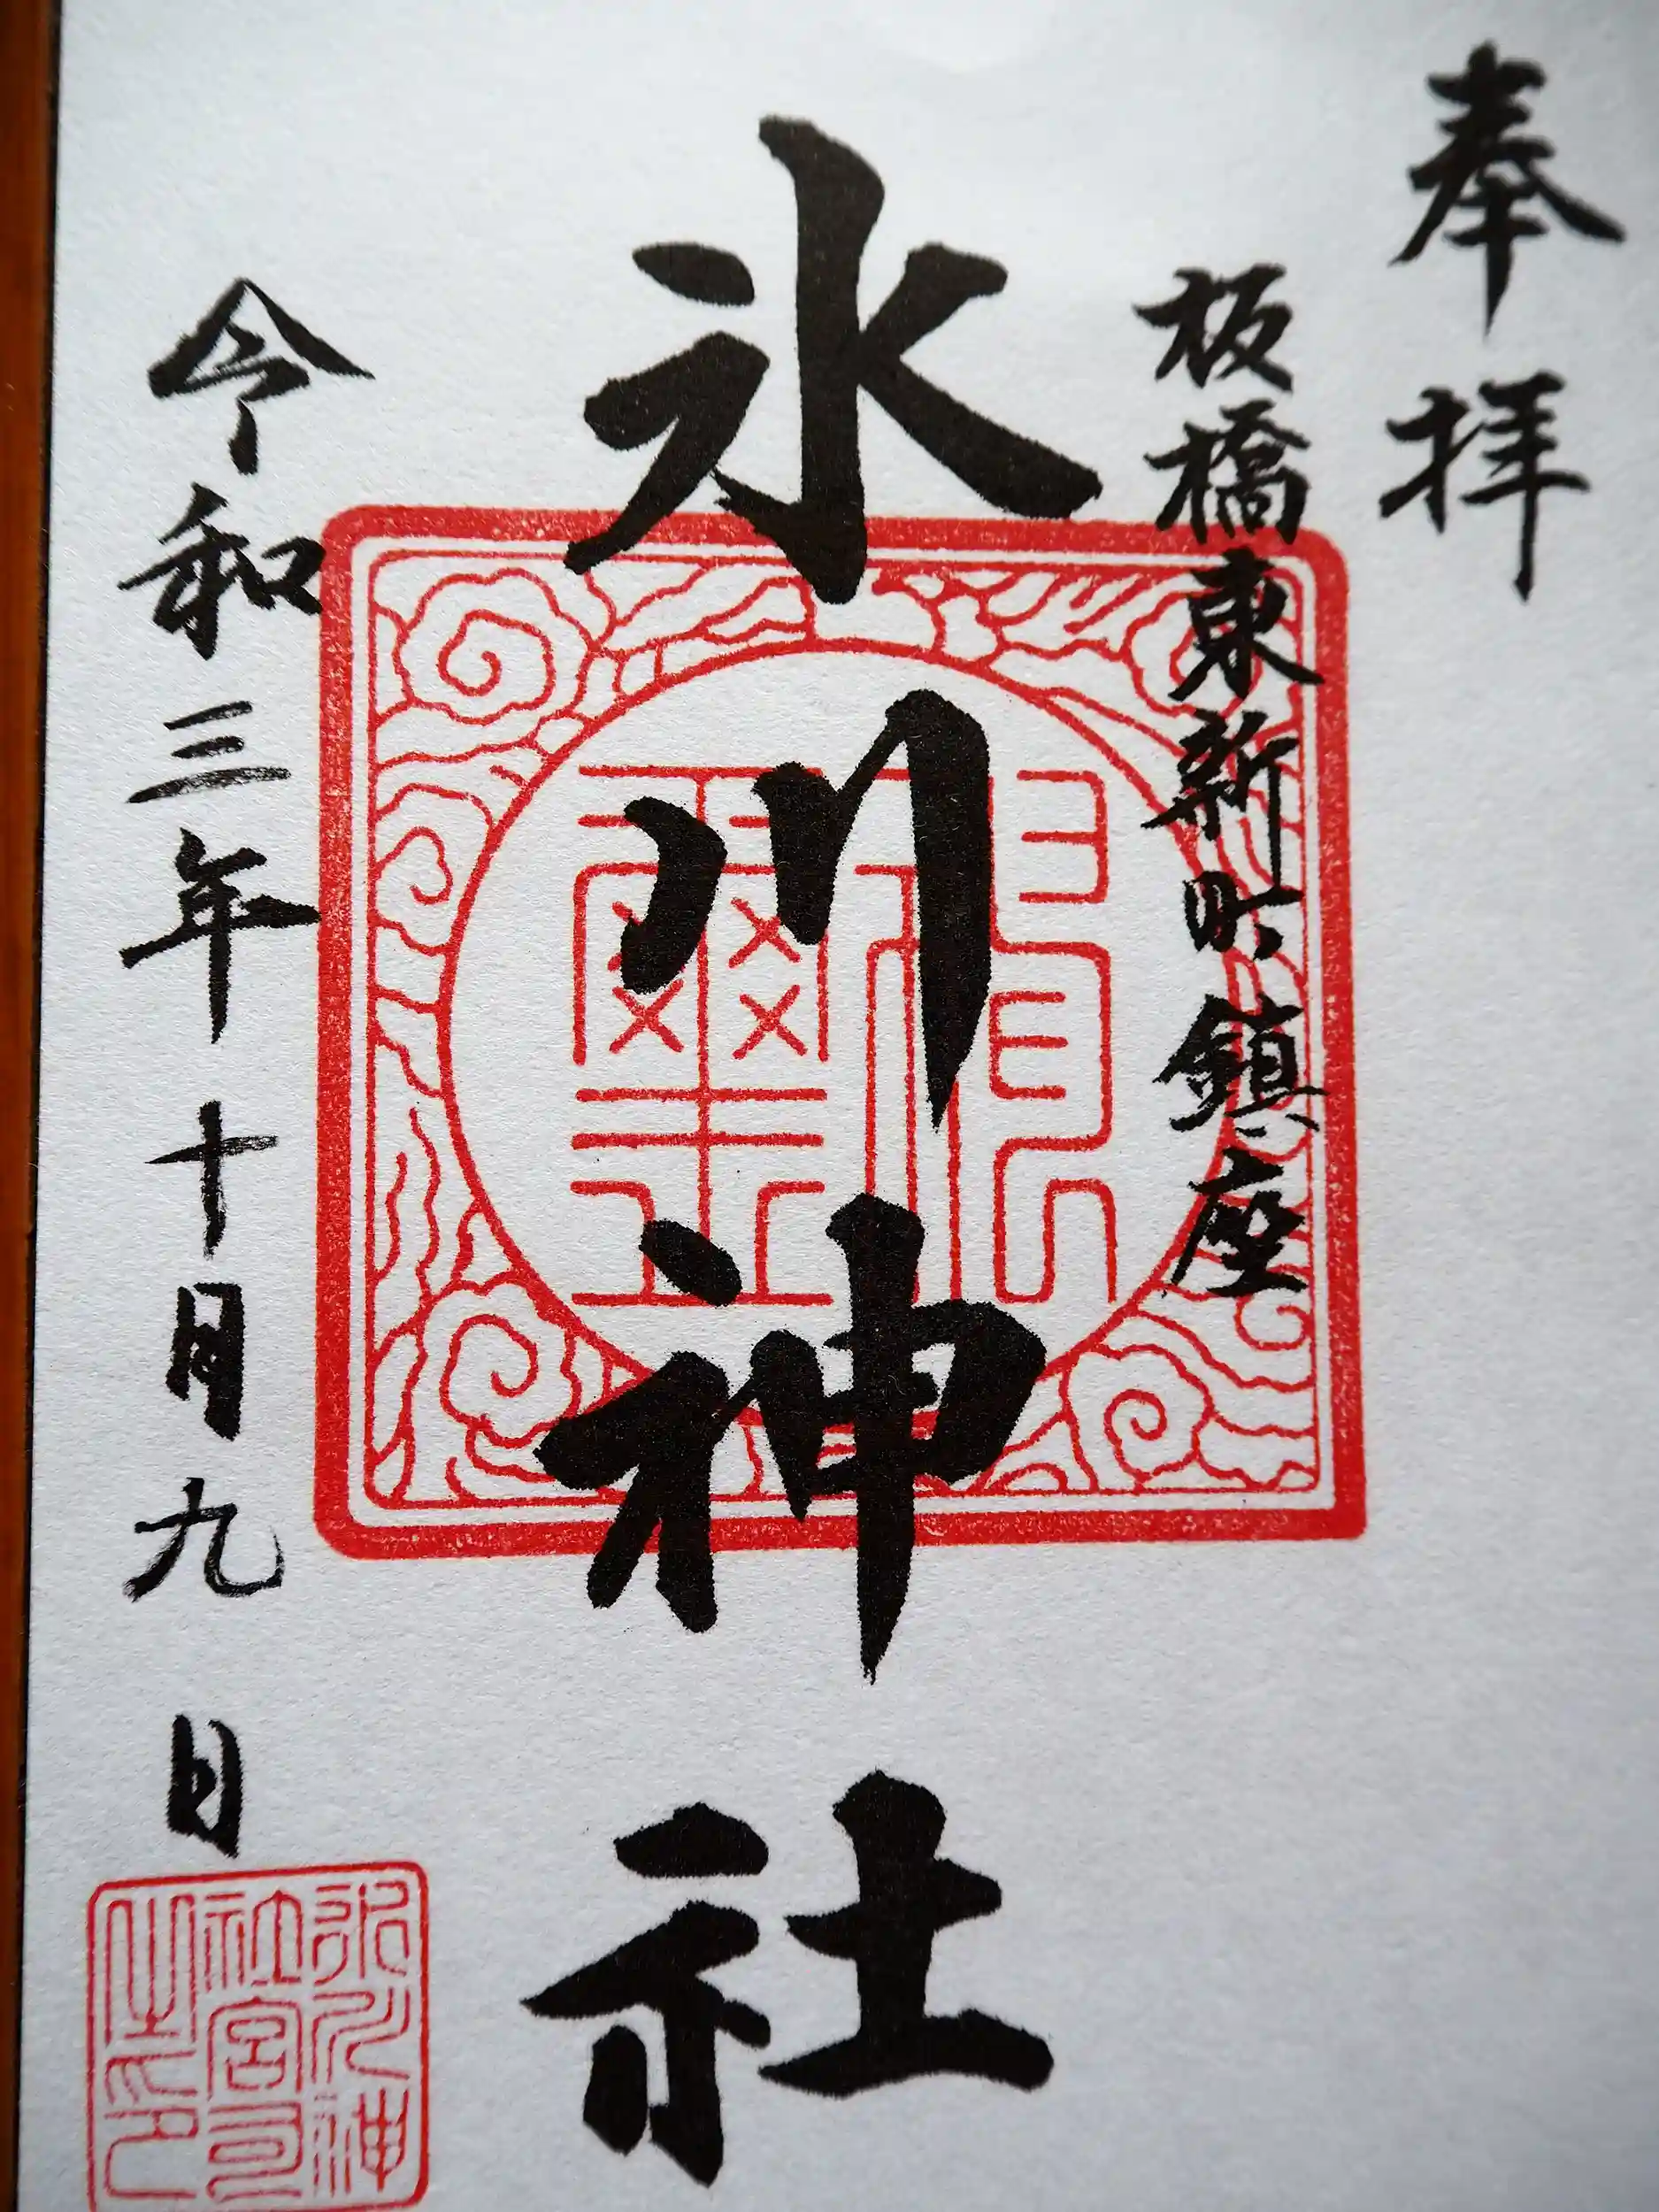 奉拝
板橋東新町鎮座
氷川神社
令和三年十月九日
氷川神
社宮司
之印